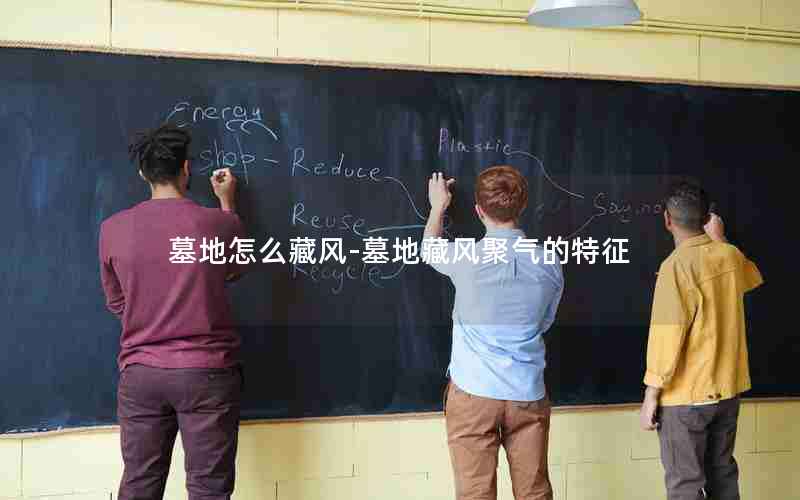 Energy
shop - Reduce
Plastic
Reuse
墓地怎么藏风-墓地藏风聚气的特征
Recycle